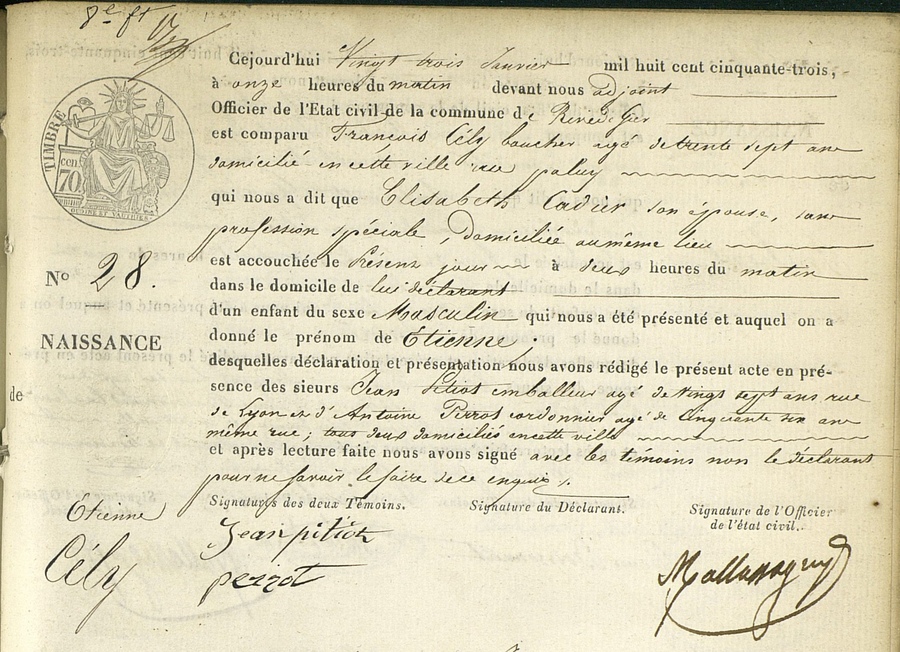 8e ft
Cejourd'hui Vingt trois Janvier mil huit cent cinquante-trois,
à onze heures du matin devant nous adjoint
Officier de l'Etat civil de la commune de Rive de Gier
est comparu François Cély boucher agé de trente sept ans
domicilié en cette ville rue paluy
qui nous a dit que Elisabeth Cadur son épouse, sans
profession spéciale, domiciliée au même lieu
est accouchée le Présent jour à deux heures du matin
dans le domicile de lui déclarant
d'un enfant du sexe Masculin qui nous a été présenté et auquel on a
donné le prénom de Etienne
desquelles déclaration et présentation nous avons rédigé le présent acte en pré-
sence des sieurs Jean Petiot emballeur agé de Vingt sept ans rue
de Lyon et d'Antoine Perrot cordonnier agé de Cinquante six ans
même rue; tous deux domiciliés en cette ville
et après lecture faite nous avons signé avec les témoins non le déclarant
pour ne savoir le faire de ce enquis
TIMBRE
cen
70
No 28.
NAISSANCE
de
Etienne
Cély
Signatures des deux Témoins.
Jean pitiot
perrot
Signature du Déclarant.
Signature de l'Officier
de l'état civil.